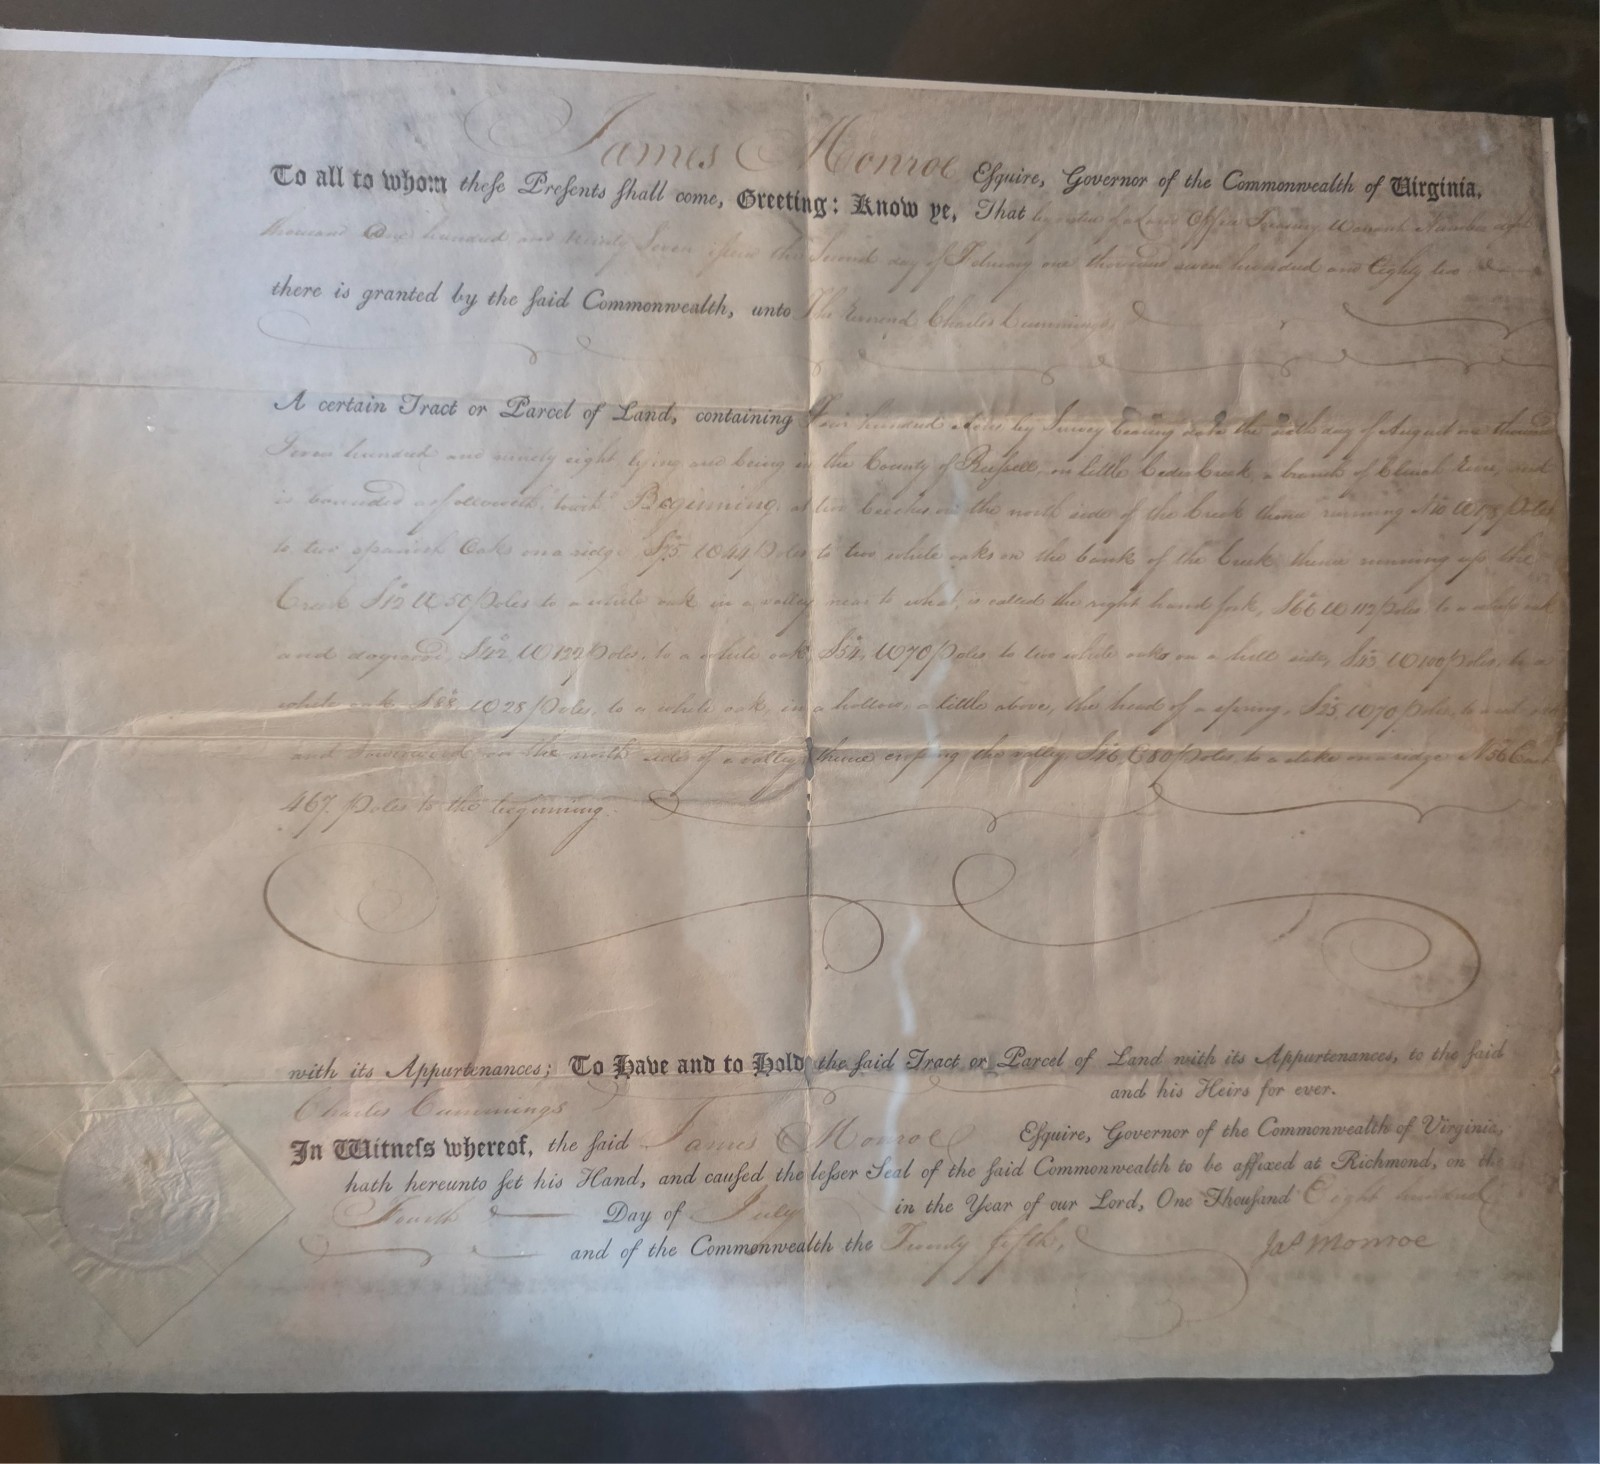 James Monroe Esquire, Governor of the Commonwealth of Virginia,
To all to whom theſe Preſents ſhall come, Greeting: Know ye, That by virtue of a Land Office Treasury Warrant Number
thousand one hundred and ninety Seven issued the Second day of February one thousand seven hundred and Eighty two
there is granted by the ſaid Commonwealth, unto The Charles Cummings
A certain Tract or Parcel of Land, containing Four hundred Acres by Survey bearing date the day of August one thousand
Seven hundred and ninety eight lying and being in the County of Russell on little Cedar Creek a branch of Clinch River, and
is bounded as followeth, towit Beginning at two beeches on the north side of the Creek thence running N10 W78 Poles
to two spanish Oaks on a ridge S75 W44 Poles to two white oaks on the bank of the Creek thence running up the
Creek S12 W50 Poles to a white oak in a valley near to what is called the right hand fork, S66 W112 poles, to a white oak
and dogwood, S42 W122 Poles, to a white oak, S54, W70 Poles to two white oaks on a hill side, S43 W100 poles, to a
white oak S88 W28 Poles, to a white oak, in a hollow, a little above, the head of a spring, S25 W70 Poles, to a
and Sourwood on the north side of a valley thence crossing the valley S46 E80 Poles, to a stake on a ridge N56 East
467 Poles to the beginning.
with its Appurtenances; To Have and to Hold the ſaid Tract or Parcel of Land with its Appurtenances, to the ſaid
Charles Cummings and his Heirs for ever.
In Witneſs whereof, the ſaid James Monroe Eſquire, Governor of the Commonwealth of Virginia,
hath hereunto ſet his Hand, and cauſed the leſſer Seal of the ſaid Commonwealth to be affixed at Richmond, on the
Fourth Day of July in the Year of our Lord, One Thouſand Eight hundred
and of the Commonwealth the Twenty fifth,
Jas Monroe